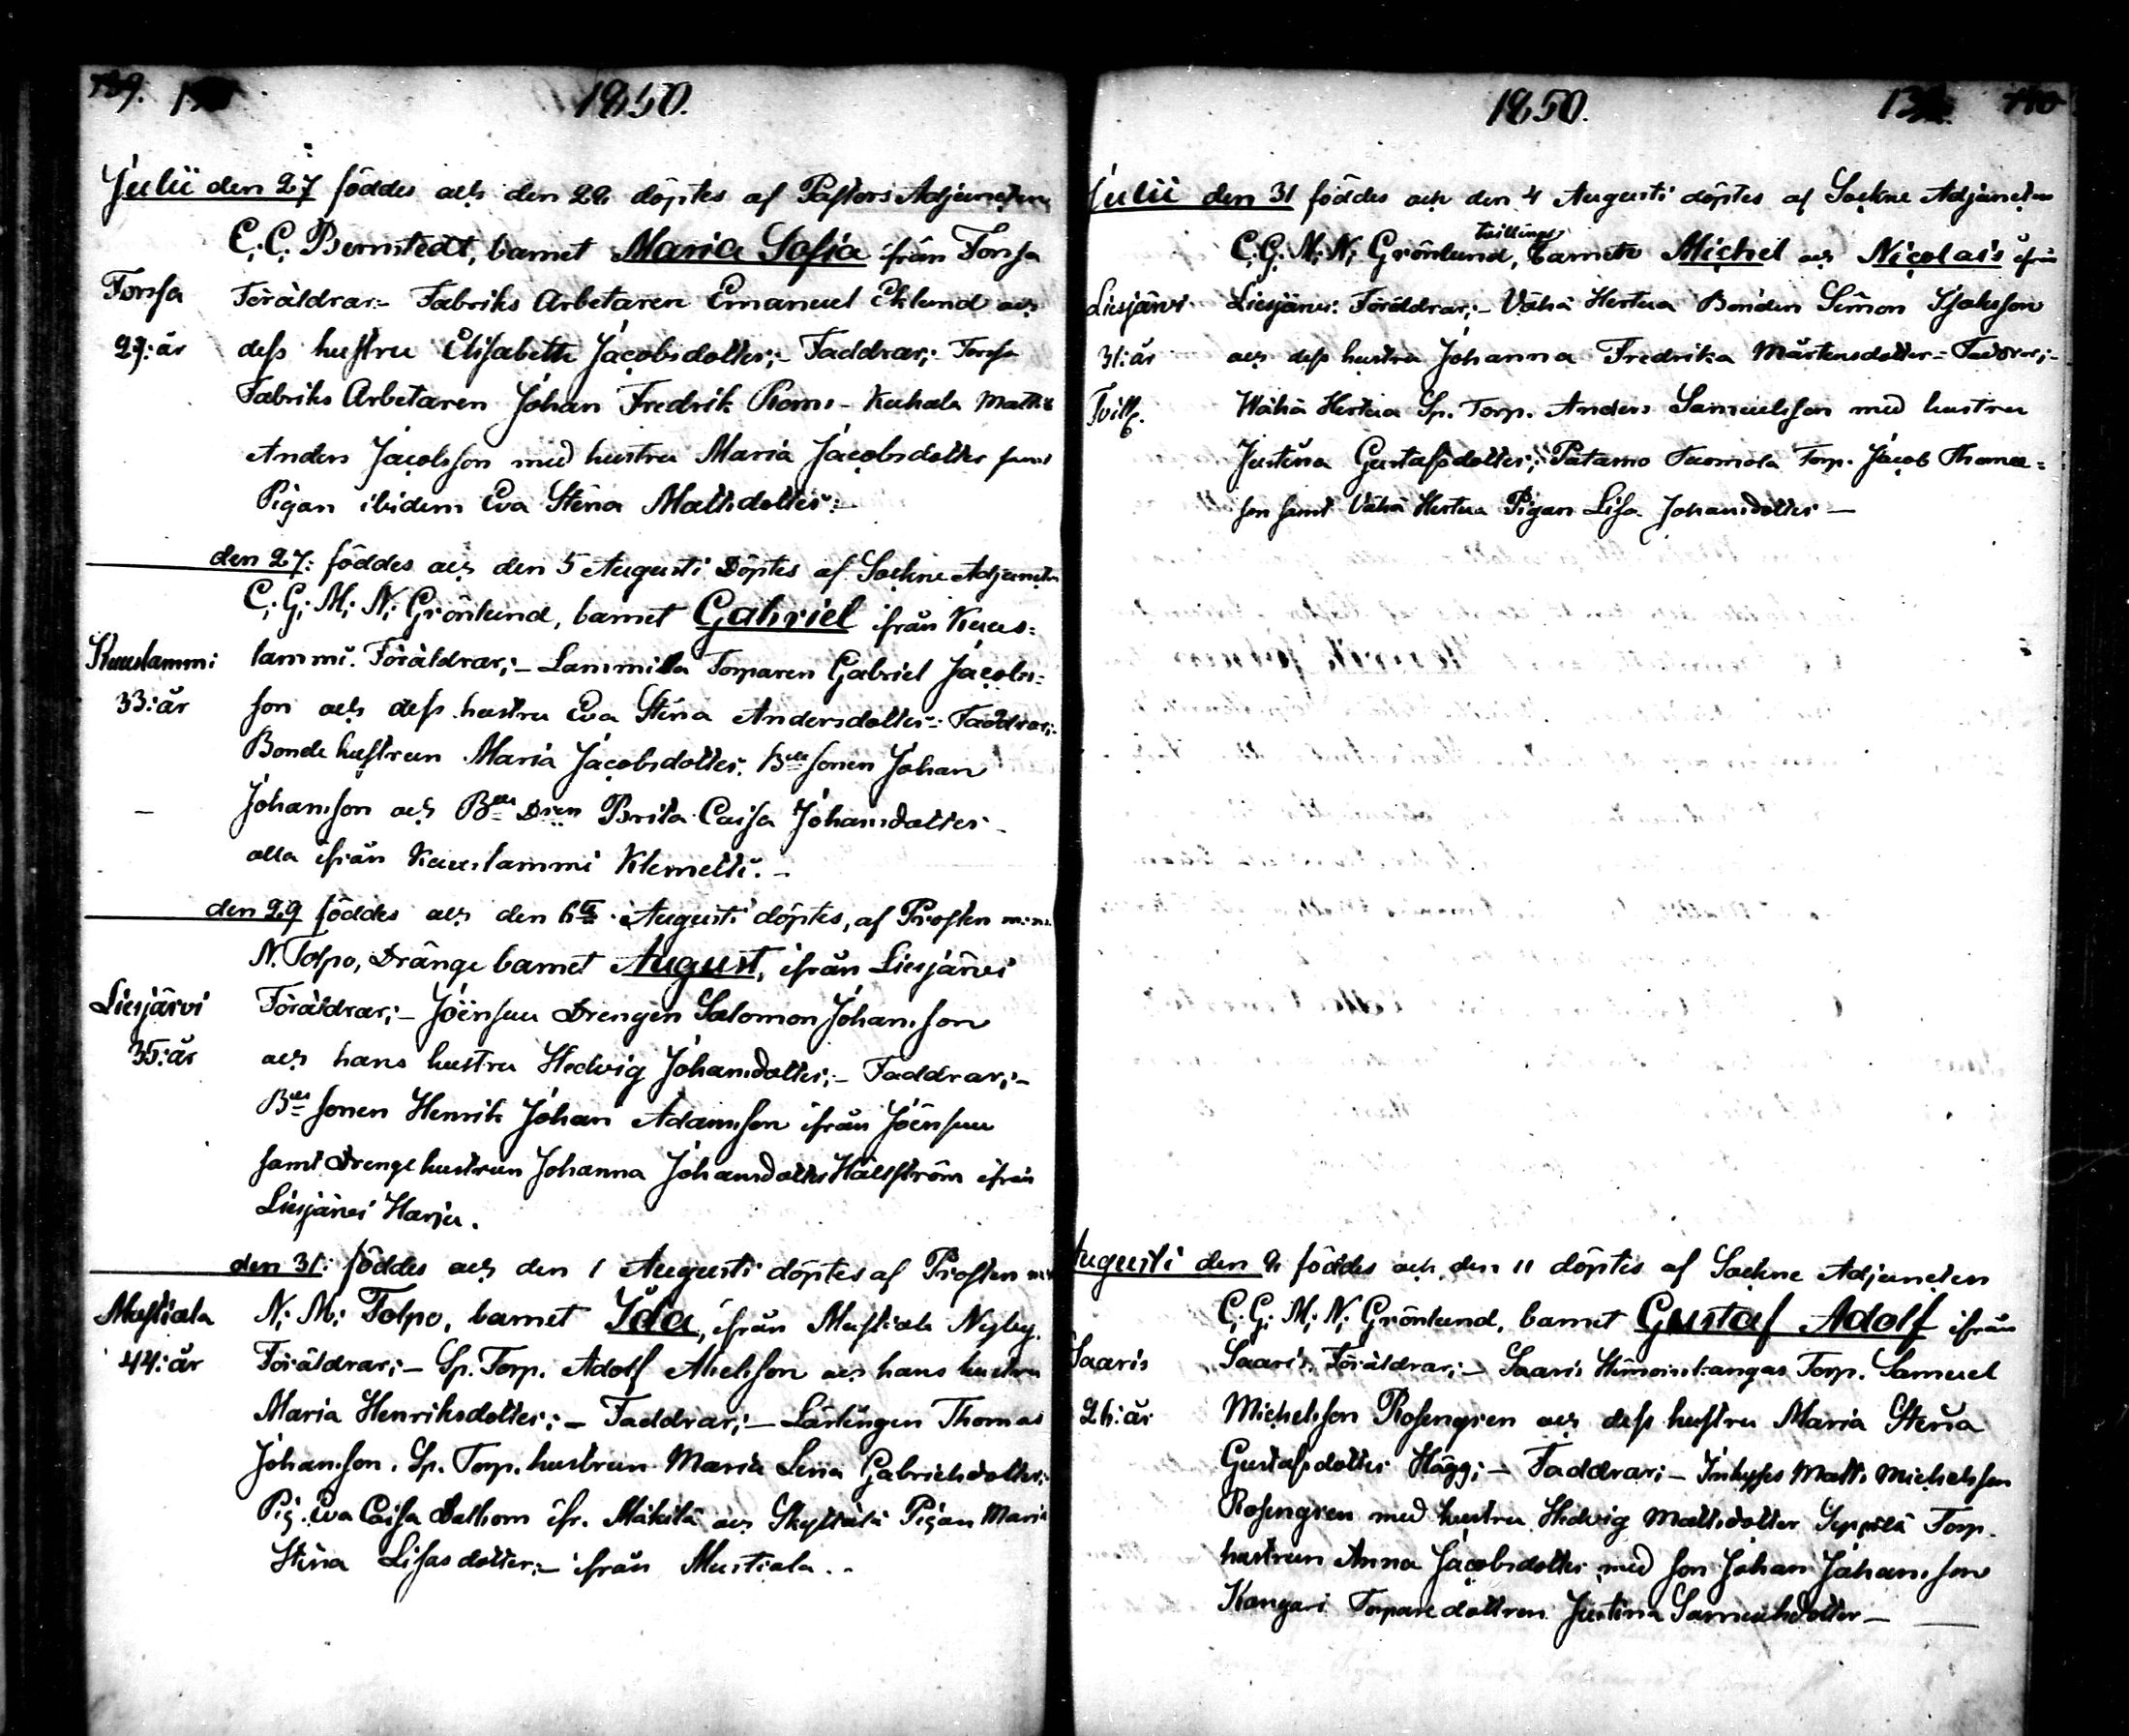 139.
1850.
Julii den 27 föddes och den 28 döptes af Pastors Adjuncten
C. C. Bernstedt, barnet Maria Sofia ifrån Forssa
Forssa
Föräldrar:- Fabriks Arbetaren Emanuel Eklund och
29: år
dess hustru Elisabeth Jacobsdotter;- Faddrar;- Forssa
Fabriks Arbetaren Johan Fredrik Roms - Kuhala
Anders Jacobsson med hustru Maria Jacobsdotter samt
Pigan ibidem Eva Stina Mattsdotter:-
den 27: föddes och den 5 Augusti Döptes af Sockne Adjuncten
C: G: M: N: Grönlund, barnet Gabriel ifrån Kuus=
Kuuslammi
lammi. Föräldrar;- Lammila Torparen Gabriel Jacobs=
33: år
son och dess hustru Eva Stina Andersdotter:- Faddrar;-
Bonde hustrun Maria Jacobsdotter. Bde sonen Johan
Johansson och Bde Dren Brita Caisa Johansdotter -
alla ifrån Kuuslammi Klemetti. -
den 29 föddes och den 6te Augusti döptes, af Prosten m: m:
N. Tolpo, Dränge barnet August, ifrån Liesjärvi
Liesjärvi
Föräldrar;- Joensuu Drengen Salomon Johansson
35: år
och hans hustru Hedvig Johansdotter;- Faddrar;-
Bde sonen Henrik Johan Adamsson ifrån Joensuu
samt Drenge hustrun Johanna Johansdotter Hällström ifrån
Liesjärvi Harju.
den 31: föddes och den 1 Augusti döptes af Prosten
Mustiala
N: M: Tolpo, barnet Ida, ifrån Mustiala Nyby.
44: år
Föräldrar;- Sp. Torp. Adolf Abelsson och hans hustru
Maria Henriksdotter;- Faddrar;- Lärlingen Thomas
Johansson. Sp. Torp. hustrun Maria Lena Gabrielsdotter;
Pig. Eva Caisa Dalbom ifr. Mäkilä och Skyttälä Pigan Maria
Stina Lisasdotter;- ifrån Mustiala. -
1850.
Julii den 31 föddes och den 4 Augusti döptes af Sockne Adjuncten
tvillings
C. G. M: N: Grönlund, barnete Michel och Nicolais ifrån
Liesjärvi
Liesjärvi: Föräldrar;- Vähä Hertua Bonden Simon Isaksson
31: år
och dess hustru Johanna Fredrika Mårtensdotter - Faddrar;-
Tvill.
Wähä Hertua Sp. Torp. Anders Samuelsson med hustru
Justina Gustafsdotter; Patamo Tuomola Torp. Jacob Thomas=
son samt Vähä Hertua Pigan Lisa Johansdotter -
Augusti den 9 föddes och den 11 döptes af Sockne Adjuncten
C. G: M: N: Grönlund, barnet Gustaf Adolf ifrån
Saaris
Saaris. Föräldrar;- Saaris Torp. Samuel
26: år
Michelsson Rosengren och dess hustru Maria Stina
Gustafsdotter Hägg;- Faddrar;- Inhyses Matts Michelsson
Rosengren med hustru Hedvig Mattsdotter Seppälä Torp.
hustrun Anna Jacobsdotter med son Johan Johansson
Kangari Torpare dottren Justina Samuelsdotter -